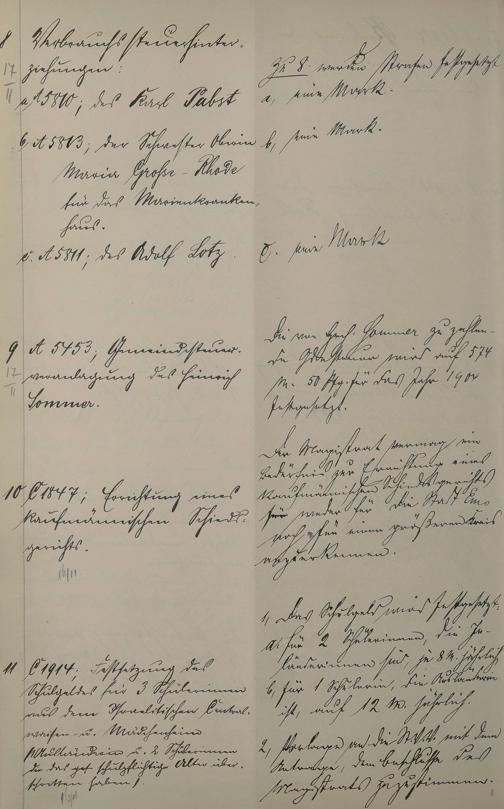 8 Verbrauchssteuerhinter-
ziehungen:
17
II
a, A 5810; des Karl Pabst
b, A 5813; der Schwester Oberin
Maria Grosse-Rhode
für das Marienkranken-
haus.
c. A 5811; des Adolf Lotz.
Zu 8. werden Strafen festgesetzt
a, eine Mark.
b, eine Mark.
c. eine Mark
9 A 5453; Gemeindesteuer-
17
II
veranlagung des Heinrich
Sommer.
Die von Sommer zu zahlen-
de wird auf 574
M. 50 Pfg. für das Jahr 190
festgesetzt.
10 C 1847; Errichtung eines
kaufmännischen Schieds-
gerichts.
Der Magistrat vermag ein
Bedürfnis zur Errichtung eines
kaufmännischen Schiedsgerichts
weder für die Stadt Ems
noch für einen größeren Kreis
anzuerkennen.
11 C 1914; Festsetzung des
Schulgeldes für 3 Schülerinnen
aus dem Israelitischen
waisen- u. Mädchenheim
u. 2 Schülerinnen
die das schulpflichtige Alter über-
schritten haben)
1, Das Schulgeld wird festgesetzt:
a, für 2 Schülerinnen, die In-
länderinnen sind, je 8 M. jährlich
b, für 1 Schülerin, die Ausländerin
ist, auf 12 M. jährlich.
2, Vorlage an die St.V.V. mit dem
Antrage, dem Beschlusse des
Magistrats zuzustimmen.